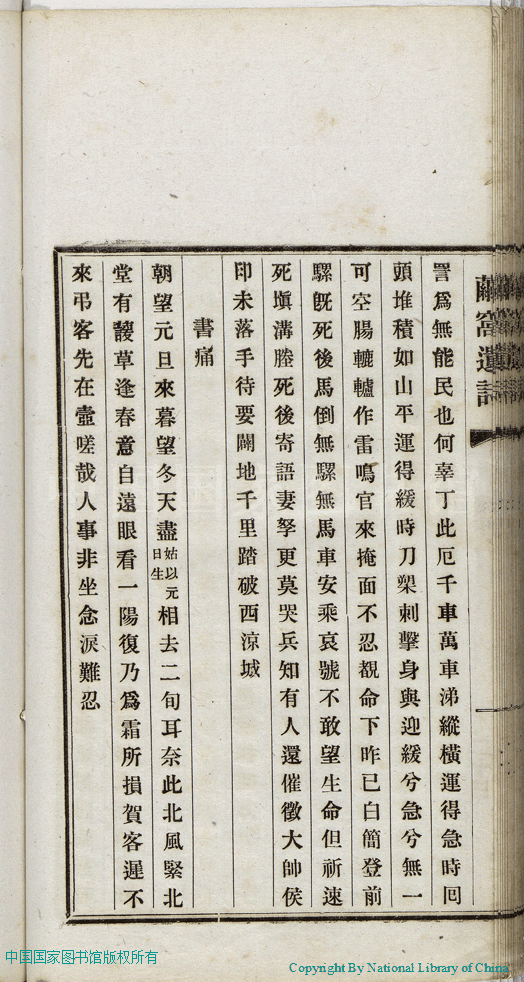 詈爲無能民也何辜丁此厄千車萬車涕縱橫運得急時囘
頭堆積如山平運得緩時刀槊刺擊身與迎緩兮急兮無一
可空腸轆轤作雷鳴官來掩面不忍覩命下昨已白簡登前
騾旣死後馬倒無騾無馬車安乘哀號不敢望生命但祈速
死塡溝塍死後寄語妻孥更莫哭兵知有人還催徵大帥侯
印未落手待要闢地千里踏破西涼城
書痛
朝望元旦來暮望冬天盡姑以元日生相去二旬耳奈此北風緊北
堂有萲草逢春意自遠眼看一陽復乃爲霜所損賀客遲不
來弔客先在壼嗟哉人事非坐念淚難忍
窩遺
中国国家图书馆版权所有
Copyright By National Library of China